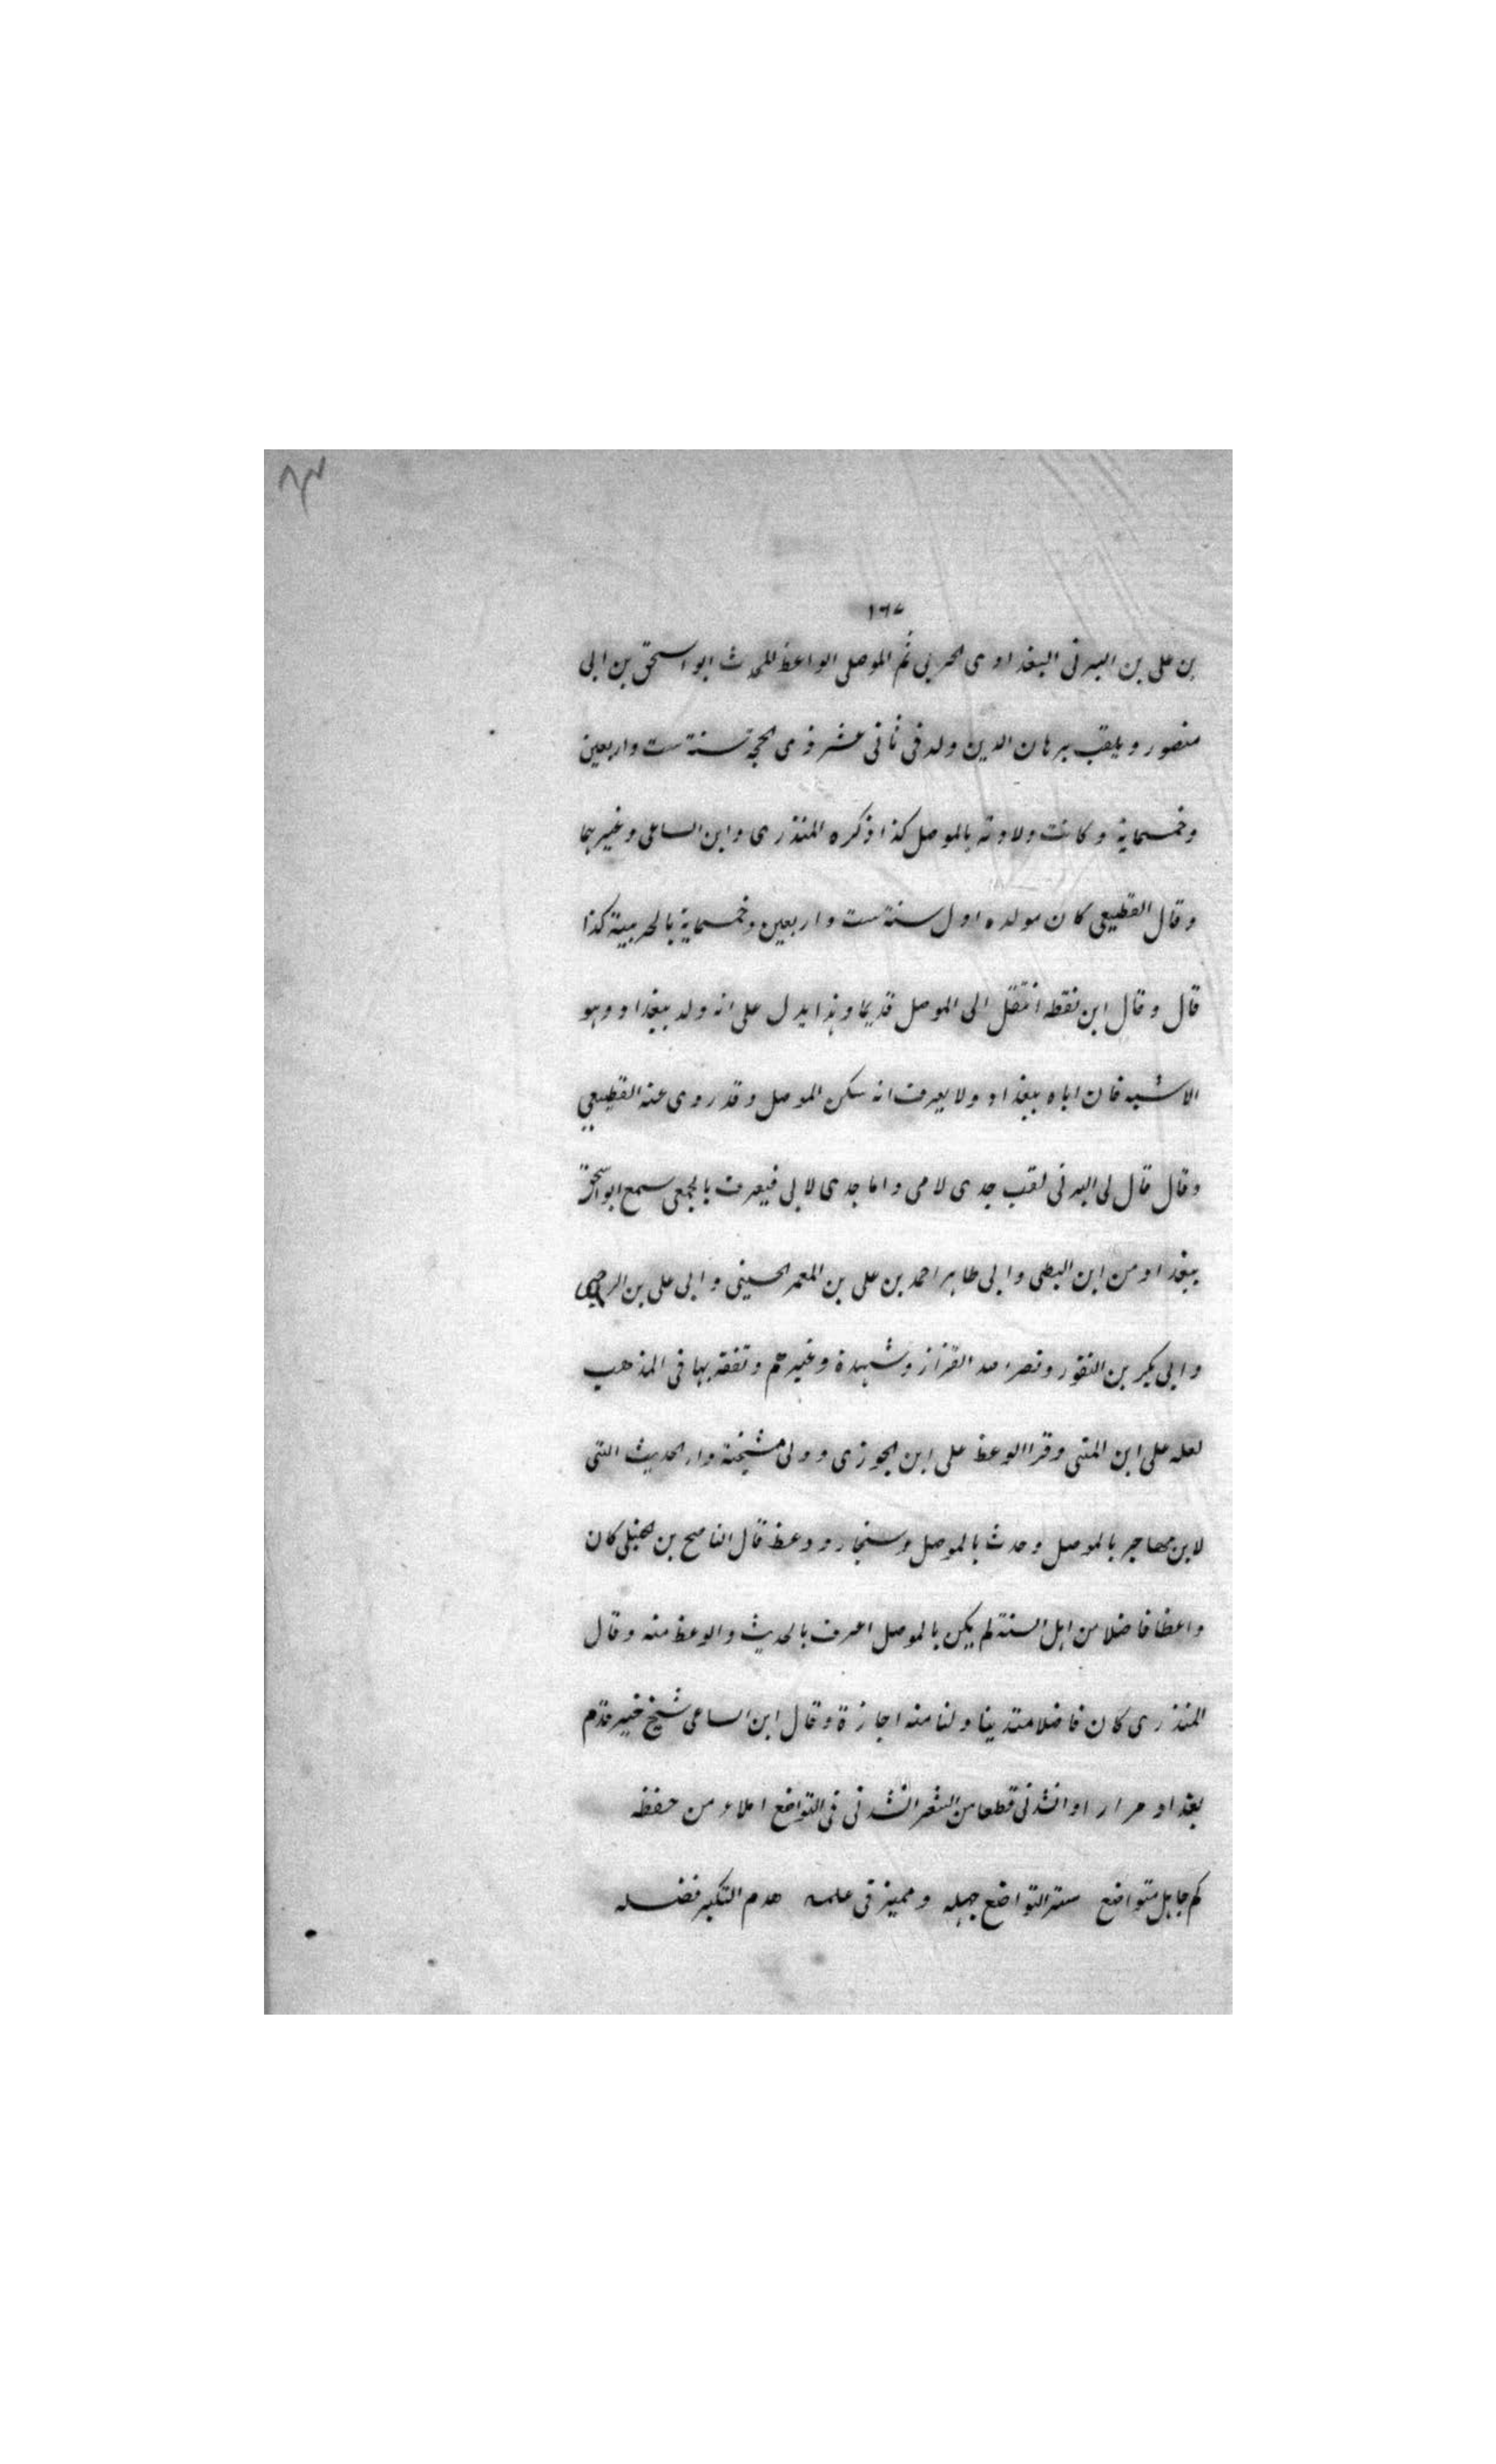 ١٦٧
بن على بن البرنى البغدادى الحربى ثم الموصلى الواعظ المحدث ابو اسحق بن ابى
منصور ويلقب ببرهان الدين ولد فى ثانى عشر ذى الحجة سنة ست واربعين
وخمسماية وكانت ولادته بالموصل كذا ذكره المنذرى وابن الساعى وغيرهما
وقال القطيعى كان مولده اول سنة ست واربعين وخمسماية بالحربية كذا
قال وقال ابن نقطه انتقل الى الموصل قديما وهذا يدل على انه ولد ببغداد وهو
الاشبه فان اباه ببغداد ولا يعرف انه سكن الموصل وقد روى عنه القطيعي
وقال قال لى البرنى لقب جدى لامى واما جدى لابى فيعرف بالجمعى سمع ابو اسحق
ببغداد من ابن البطى وابى طاهر احمد بن على بن المعمر الحسينى وابى على بن الرحبى
وابى بكر بن النقور ونصر الله القزاز وشهدة وغيرهم وتفقه بها فى المذهب
لعله على ابن المنى وقرا الوعظ على ابن الجوزى وولى مشيخة دار الحديث التى
لابن مهاجر بالموصل وحدث بالموصل وسنجار ووعظ قال الناصح بن الحنبلى كان
واعظا فاضلا من اهل السنة لم يكن بالموصل اعرف بالحديث والوعظ منه وقال
المنذرى كان فاضلا متدينا ولنا منه اجازة وقال ابن الساعى شيخ خير قدم
بغداد مرارا وانشدنى قطعا من الشعر انشدنى فى التواضع املاء من حفظه
كم جاهل متواضع ستر التواضع جهله ومميز فى علمه هدم التكبر فضله